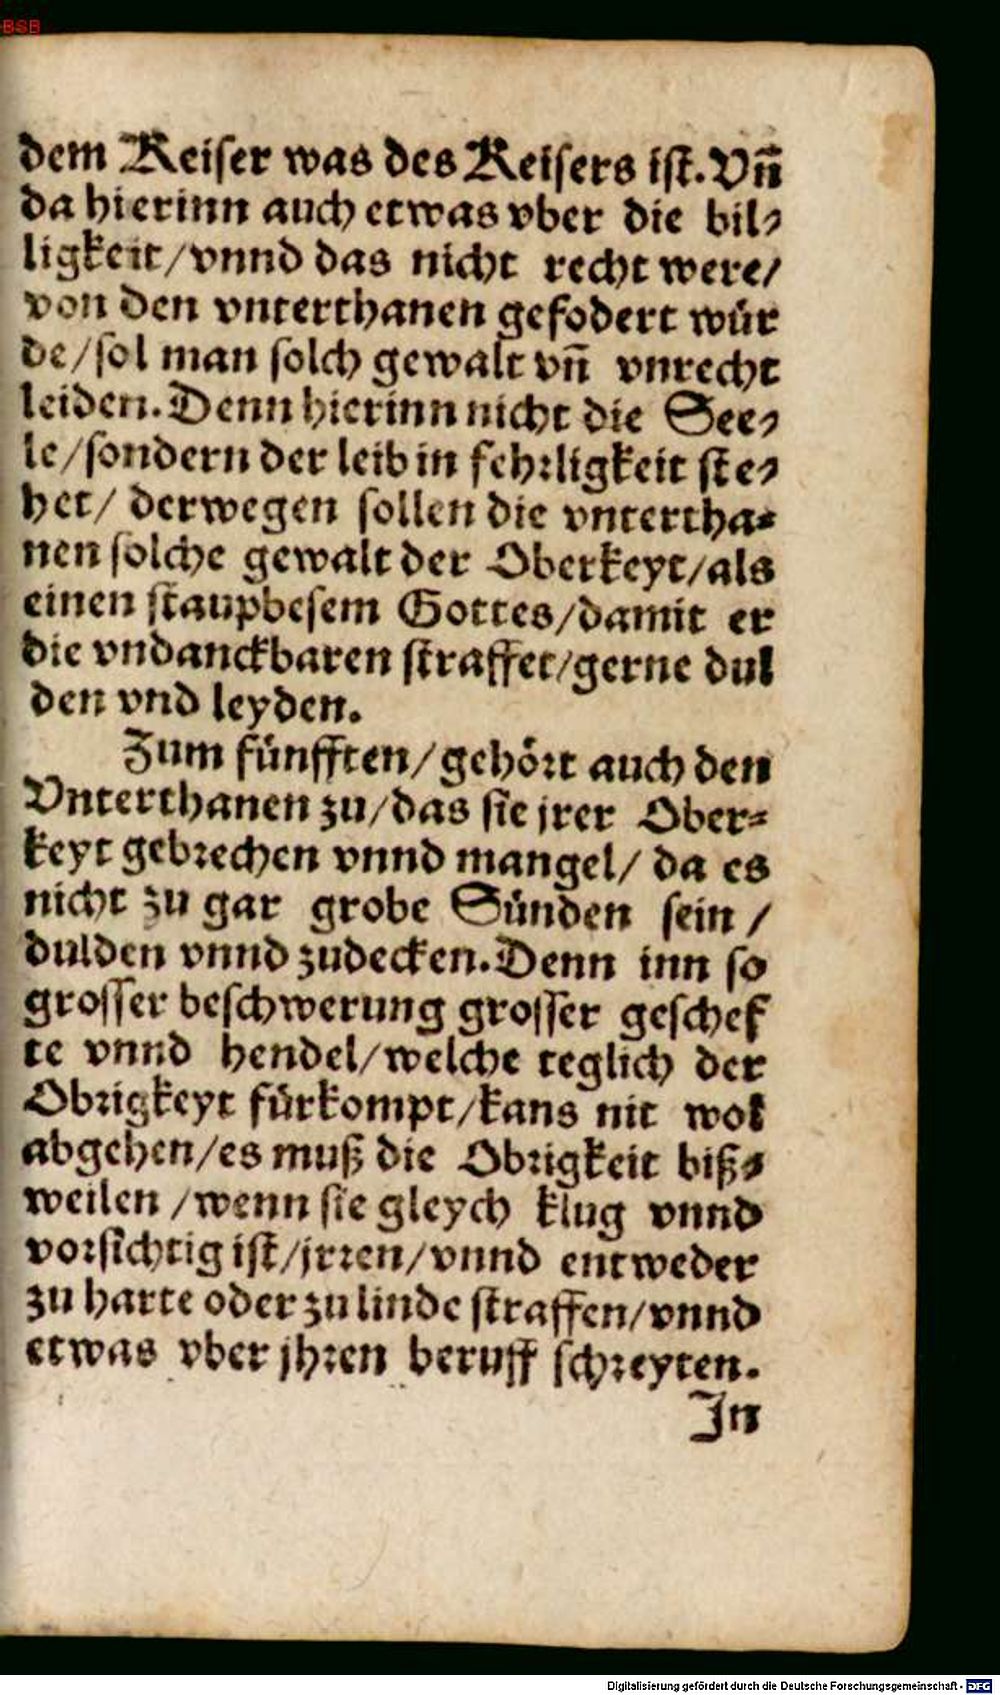 BSB
dem Keiser was des Keisers ist. Vñ
da hierinn auch etwas vber die bil⸗
ligkeit/vnnd das nicht recht were/
von den vnterthanen gefodert wür
de/sol man solch gewalt vñ vnrecht
leiden. Denn hierinn nicht die See⸗
le/sondern der leib in fehrligkeit ste⸗
het/ derwegen sollen die vntertha⸗
nen solche gewalt der Oberkeyt/als
einen staupbesem Gottes/damit er
die vndanckbaren straffet/gerne dul
den vnd leyden.
Zum fünfften/gehört auch den
Vnterthanen zu/das sie jrer Ober⸗
keyt gebrechen vnnd mangel/ da es
nicht zu gar grobe Sünden sein /
dulden vnnd zudecken. Denn inn so
grosser beschwerung grosser geschef
te vnnd hendel/welche teglich der
Obrigkeyt fürkompt/kans nit wol
abgehen/es muß die Obrigkeit biß⸗
weilen /wenn sie gleych klug vnnd
vorsichtig ist/jrren/vnnd entweder
zu harte oder zu linde straffen/vnnd
etwas vber jhren beruff schreyten.
In
Digitalisierung gefördert durch die Deutsche Forschungsgemeinschaft - DFG